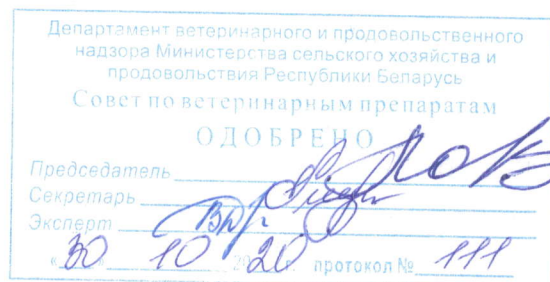 Департамент ветеринарного и продовольственного
надзора Министерства сельского хозяйства и
продовольствия Республики Беларусь
Совет по ветеринарным препаратам
ОДОБРЕНО
Председатель
Секретарь
Эксперт
«30» 10 2020 г. протокол № 111